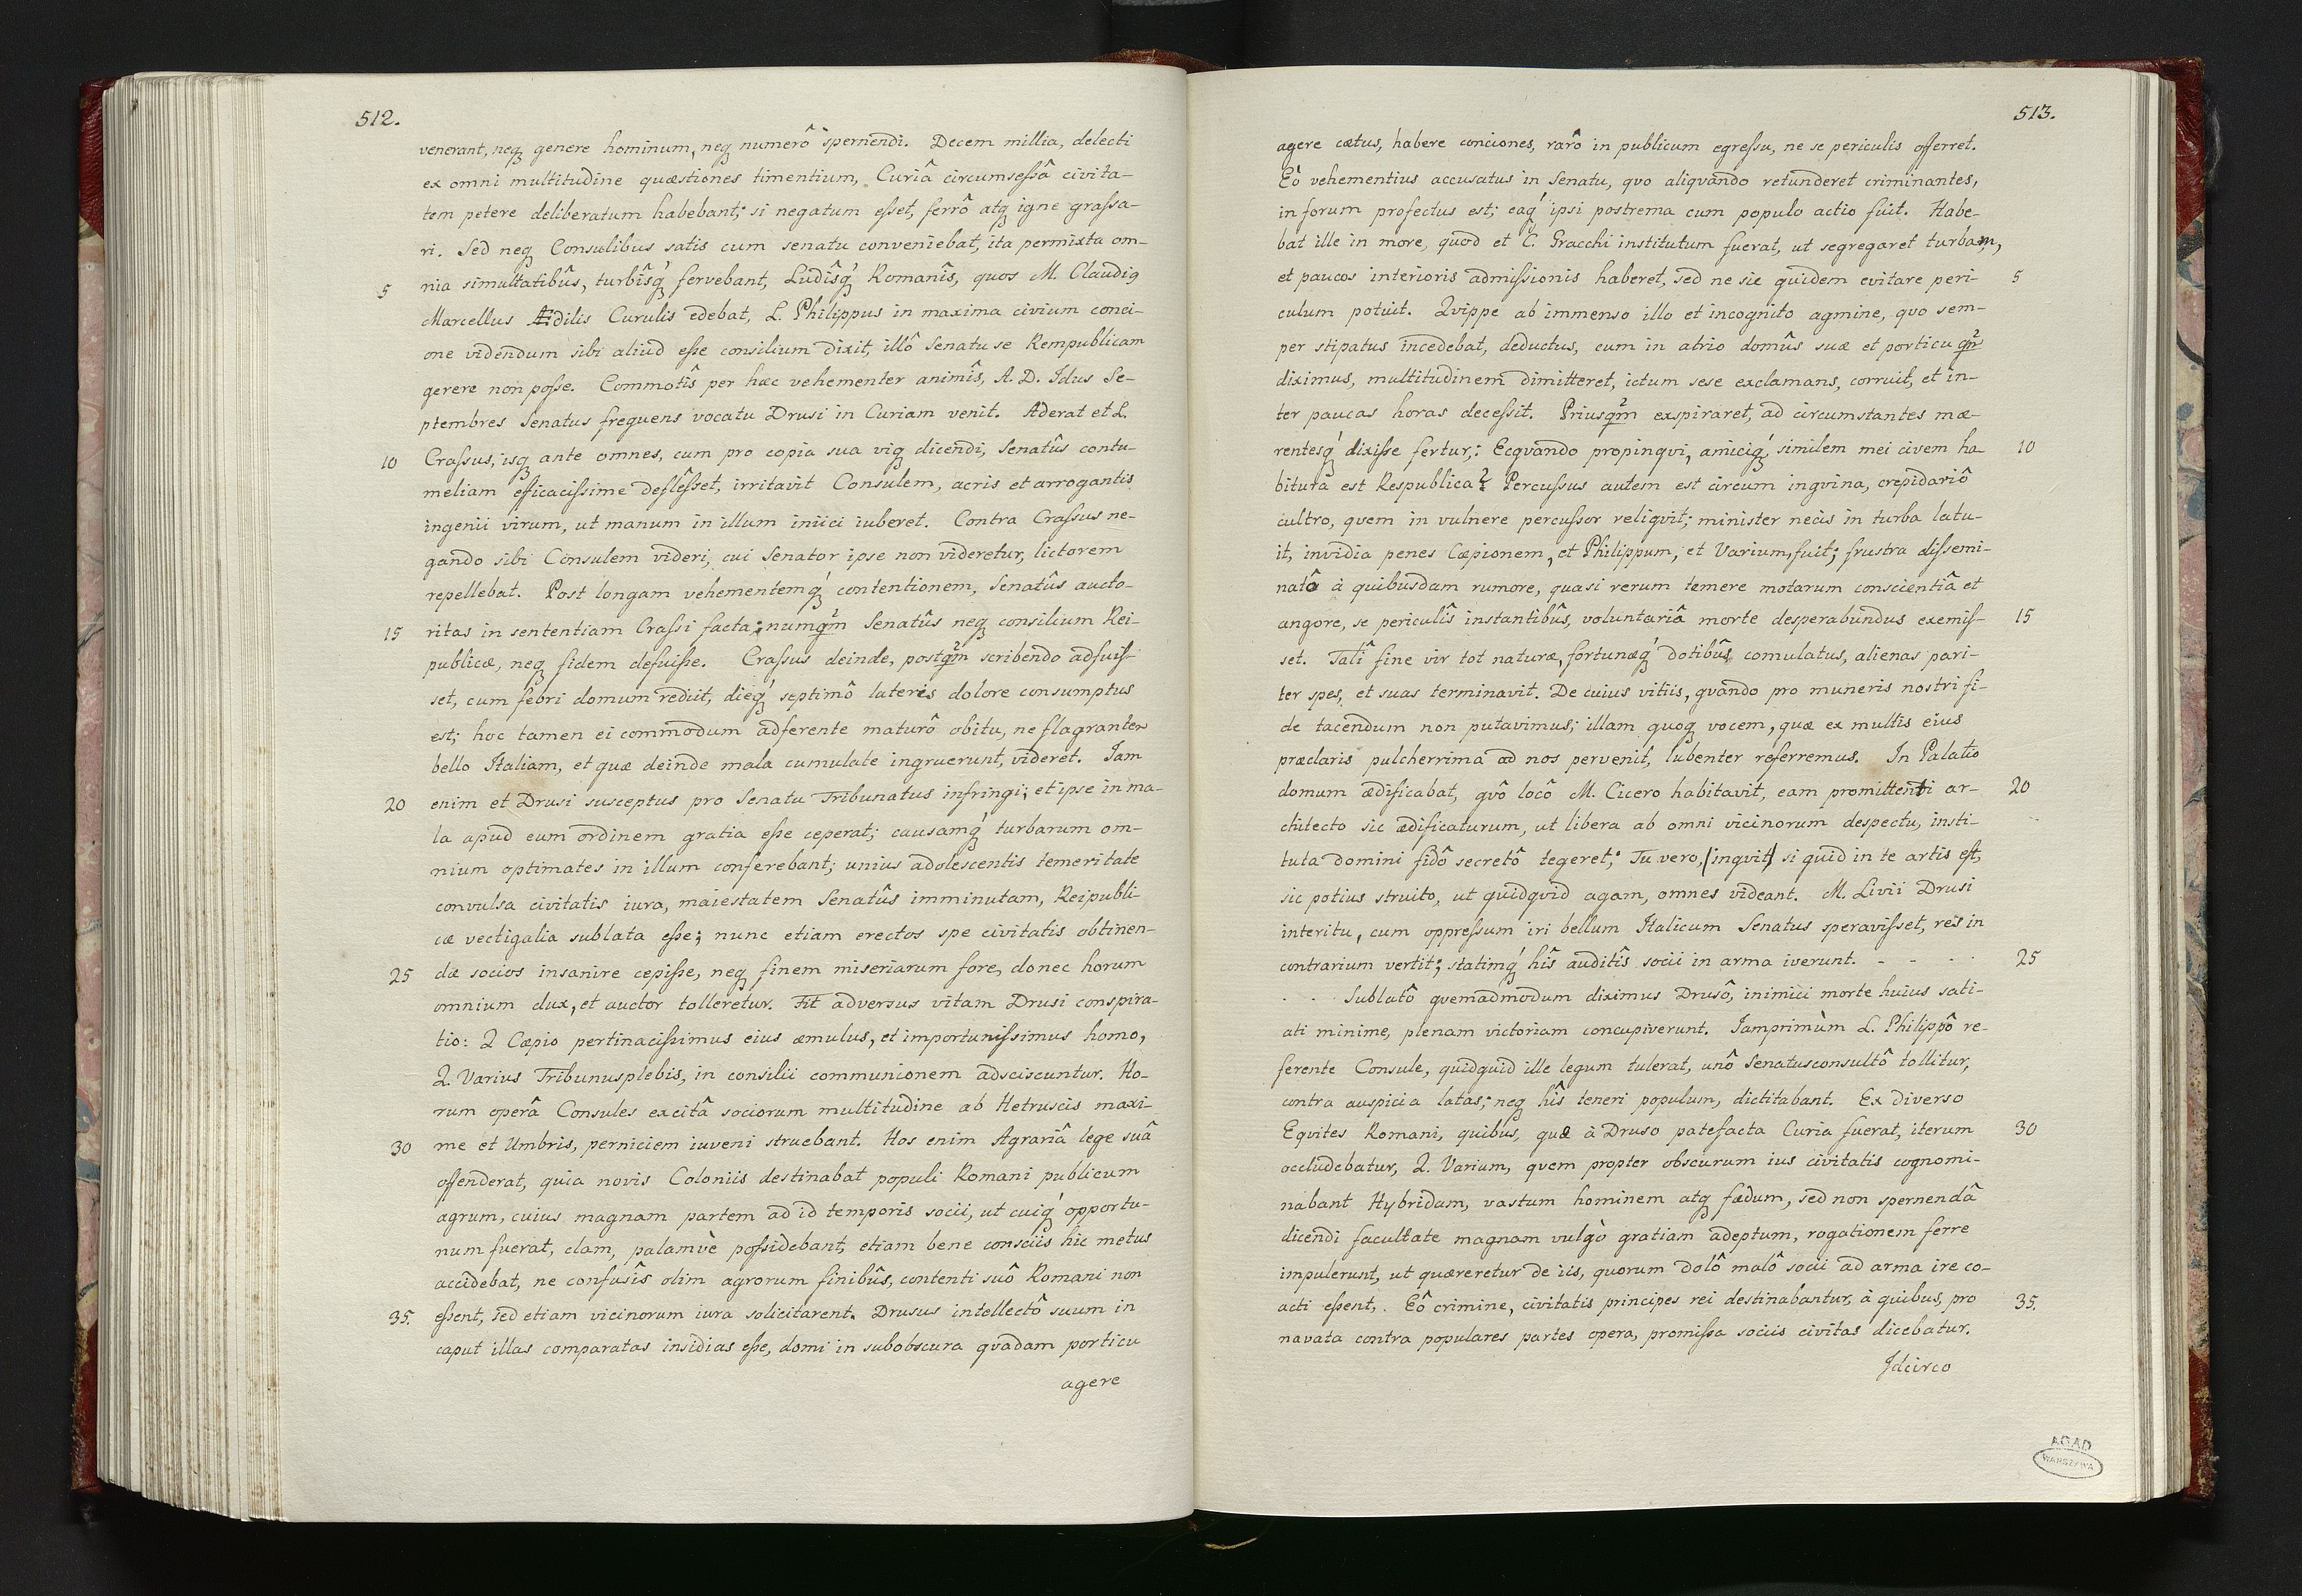 512.
venerant, neq₃ genere hominum, neq₃ numerô spernendi. Decem millia, delecti
ex omni multitudine quæstiones timentium, Curiâ circumseſsâ civita-
tem petere deliberatum habebant; si negatum eſset, ferrô atq₃ igne graſsa-
ri. Sed neq₃ Consulibus satis cum senatu conveniebat, ita permixta om-
5 nia simultatibûs, turbîsq₃́ fervebant, Ludîsq₃́ Romanîs, quos M. Claudi9
Marcellus Ædilis Curulis edebat, L. Philippus in maxima civium conci-
one videndum sibi aliud eſse consilium dixit, illô Senatu se Rempublicam
gerere non poſse. Commotîs per hæc vehementer animîs, A. D. Idus Se-
ptembres Senatus frequens vocatu Drusi in Curiam venit. Aderat et L.
10 Craſsus, isq₃ ante omnes, cum pro copia sua viq₃ dicendi, Senatûs contu-
meliam efficaciſsime defleſset, irritavit Consulem, acris et arrogantis
ingenii virum, ut manum in illum iniici iuberet. Contra Craſsus ne-
gando sibi Consulem videri, cui Senator ipse non videretur, lictorem
repellebat. Post longam vehementemq₃́ contentionem, Senatûs aucto-
15 ritas in sententiam Craſsi facta; numqm̃ Senatûs neq₃ consilium Rei-
publicæ, neq₃ fidem defuiſse. Craſsus deinde, postqm̃ scribendo adfuiſ-
set, cum febri domum rediit, dieq₃́ septimô lateris dolore consumptus
est; hoc tamen ei commodum adferente maturô obitu, ne flagrantem
bello Italiam, et quæ deinde mala cumulate ingruerunt, videret. Iam
20 enim et Drusi susceptus pro Senatu Tribunatus infringi; et ipse in ma-
la apud eum ordinem gratia eſse ceperat; causamq₃́ turbarum om-
nium optimates in illum conferebant; unius adolescentis temeritate
convulsa civitatis iura, maiestatem Senatûs imminutam, Reipubli-
cæ vectigalia sublata eſse; nunc etiam erectos spe civitatis obtinen-
25 dæ socios insanire cepiſse, neq₃ finem miseriarum fore, donec horum
omnium dux, et auctor tolleretur. Fit adversus vitam Drusi conspira-
tio: Q Cæpio pertinaciſsimus eius æmulus, et importuniſsimus homo,
Q. Varius Tribunusplebis, in consilii communionem adsciscuntur. Ho-
rum operâ Consules excitâ sociorum multitudine ab Hetruscis maxi-
30 me et Umbris, perniciem iuveni struebant. Hos enim Agrariâ lege suâ
offenderat, quia novis Coloniis destinabat populi Romani publicum
agrum, cuius magnam partem ad id temporis socii, ut cuiq₃́ opportu-
num fuerat, clam, palamvè poſsidebant, etiam bene consciis hic metus
accidebat, ne confusîs olim agrorum finibûs, contenti suô Romani non
35. eſsent, sed etiam vicinorum iura solicitarent. Drusus intellectô suum in
caput illas comparatas insidias eſse, domi in subobscura quadam porticu
agere
513.
agere cætus, habere conciones, rarô in publicum egreſsu, ne se periculis offerret.
Eô vehementius accusatus in Senatu, quo aliquando retunderet criminantes,
in forum profectus est; eaq₃́ ipsi postrema cum populo actio fuit. Habe-
bat ille in more, quod et C. Gracchi institutum fuerat, ut segregaret turbam,
et paucos interioris admiſsionis haberet, sed ne sic quidem evitare peri- 5
culum potuit. Quippe ab immenso illo et incognito agmine, quo sem-
per stipatus incedebat, deductus, cum in atrio domûs suæ et porticu qm̃
diximus, multitudinem dimitteret, ictum sese exclamans, corruit, et in-
ter paucas horas deceſsit. Priusqm̃ exspiraret, ad circumstantes mæ-
rentesq₃́ dixiſse fertur,: Ecquando propinqui, amiciq₃́ similem mei civem ha- 10
bitura est Respublica? Percuſsus autem est circum inguina, crepidariô
cultro, quem in vulnere percuſsor reliquit; minister necis in turba latu-
it, invidia penes Cæpionem, et Philippum, et Varium, fuit; frustra diſsemi-
natô à quibusdam rumore, quasi rerum temere motarum conscientiâ et
angore, se periculîs instantibûs, voluntariâ morte desperabundus exemiſ- 15
set. Talî fine vir tot naturæ, fortunæq₃́ dotibûs comulatus, alienas pari-
ter spes, et suas terminavit. De cuius vitiis, quando pro muneris nostri fi-
de tacendum non putavimus; illam quoq₃ vocem, quæ ex multis eius
præclaris pulcherrima ad nos pervenit, lubenter referremus. In Palatio
domum ædificabat, quô locô M. Cicero habitavit, eam promittenti ar- 20
chitecto sic ædificaturum, ut libera ab omni vicinorum despectu, insti-
tuta domini fidô secretô tegeret; Tu vero, (inquit) si quid in te artis est,
sic potius struito, ut quidquid agam, omnes videant. M. Livii Drusi
interitu, cum oppreſsum iri bellum Italicum Senatus speraviſset, res in
contrarium vertit; statimq₃́ hîs auditîs socii in arma iverunt. - - - . 25
. . . Sublatô quemadmodum diximus Drusô, inimici morte huius sati-
ati minime, plenam victoriam concupiverunt. Iamprimùm L. Philippô re-
ferente Consule, quidquid ille legum tulerat, unô Senatusconsultô tollitur,
contra auspicia latas; neq₃ hîs teneri populum, dictitabant. Ex diverso
Equites Romani, quibus, quæ à Druso patefacta Curia fuerat, iterum 30
occludebatur, Q. Varium, quem propter obscurum ius civitatis cognomi-
nabant Hybridam, vastum hominem atq₃ fædum, sed non spernendâ
dicendi facultate magnam vulgò gratiam adeptum, rogationem ferre
impulerunt, ut quæreretur de iis, quorum dolô malô socii ad arma ire co-
acti eſsent,. Eô crimine, civitatis principes rei destinabantur, à quibus, pro 35.
navata contra populares partes opera, promiſsa sociis civitas dicebatur.
Idcirco
AGAD
WARSZAWA